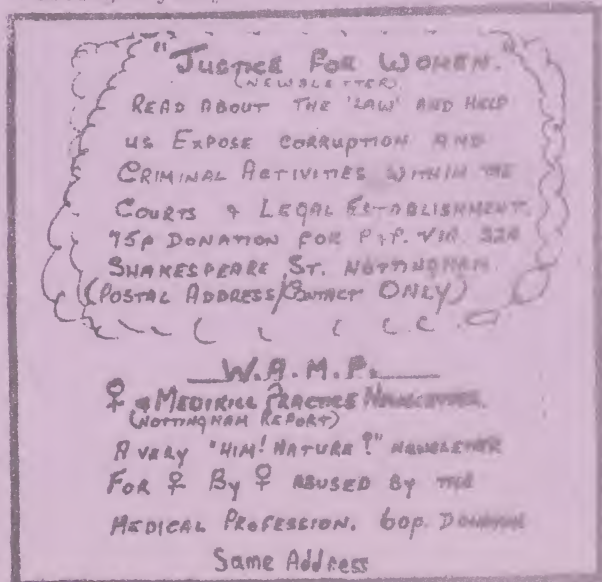 "JUSTICE FOR WOMEN."
(NEWSLETTER)
READ ABOUT THE 'LAW' AND HELP
US EXPOSE CORRUPTION AND
CRIMINAL ACTIVITIES WITHIN THE
COURTS & LEGAL ESTABLISHMENT.
75p DONATION FOR P+P. VIA 32A
SHAKESPEARE ST. NOTTINGHAM
(POSTAL ADDRESS/CONTACT ONLY)
W.A.M.P.
♀ & MEDIKILL PRACTICE NEWSLETTER.
(NOTTINGHAM REPORT)
A VERY "HIM! HATURE?" NEWSLETTER
FOR ♀ BY ♀ ABUSED BY THE
MEDICAL PROFESSION. 60p. DONATION
Same Address